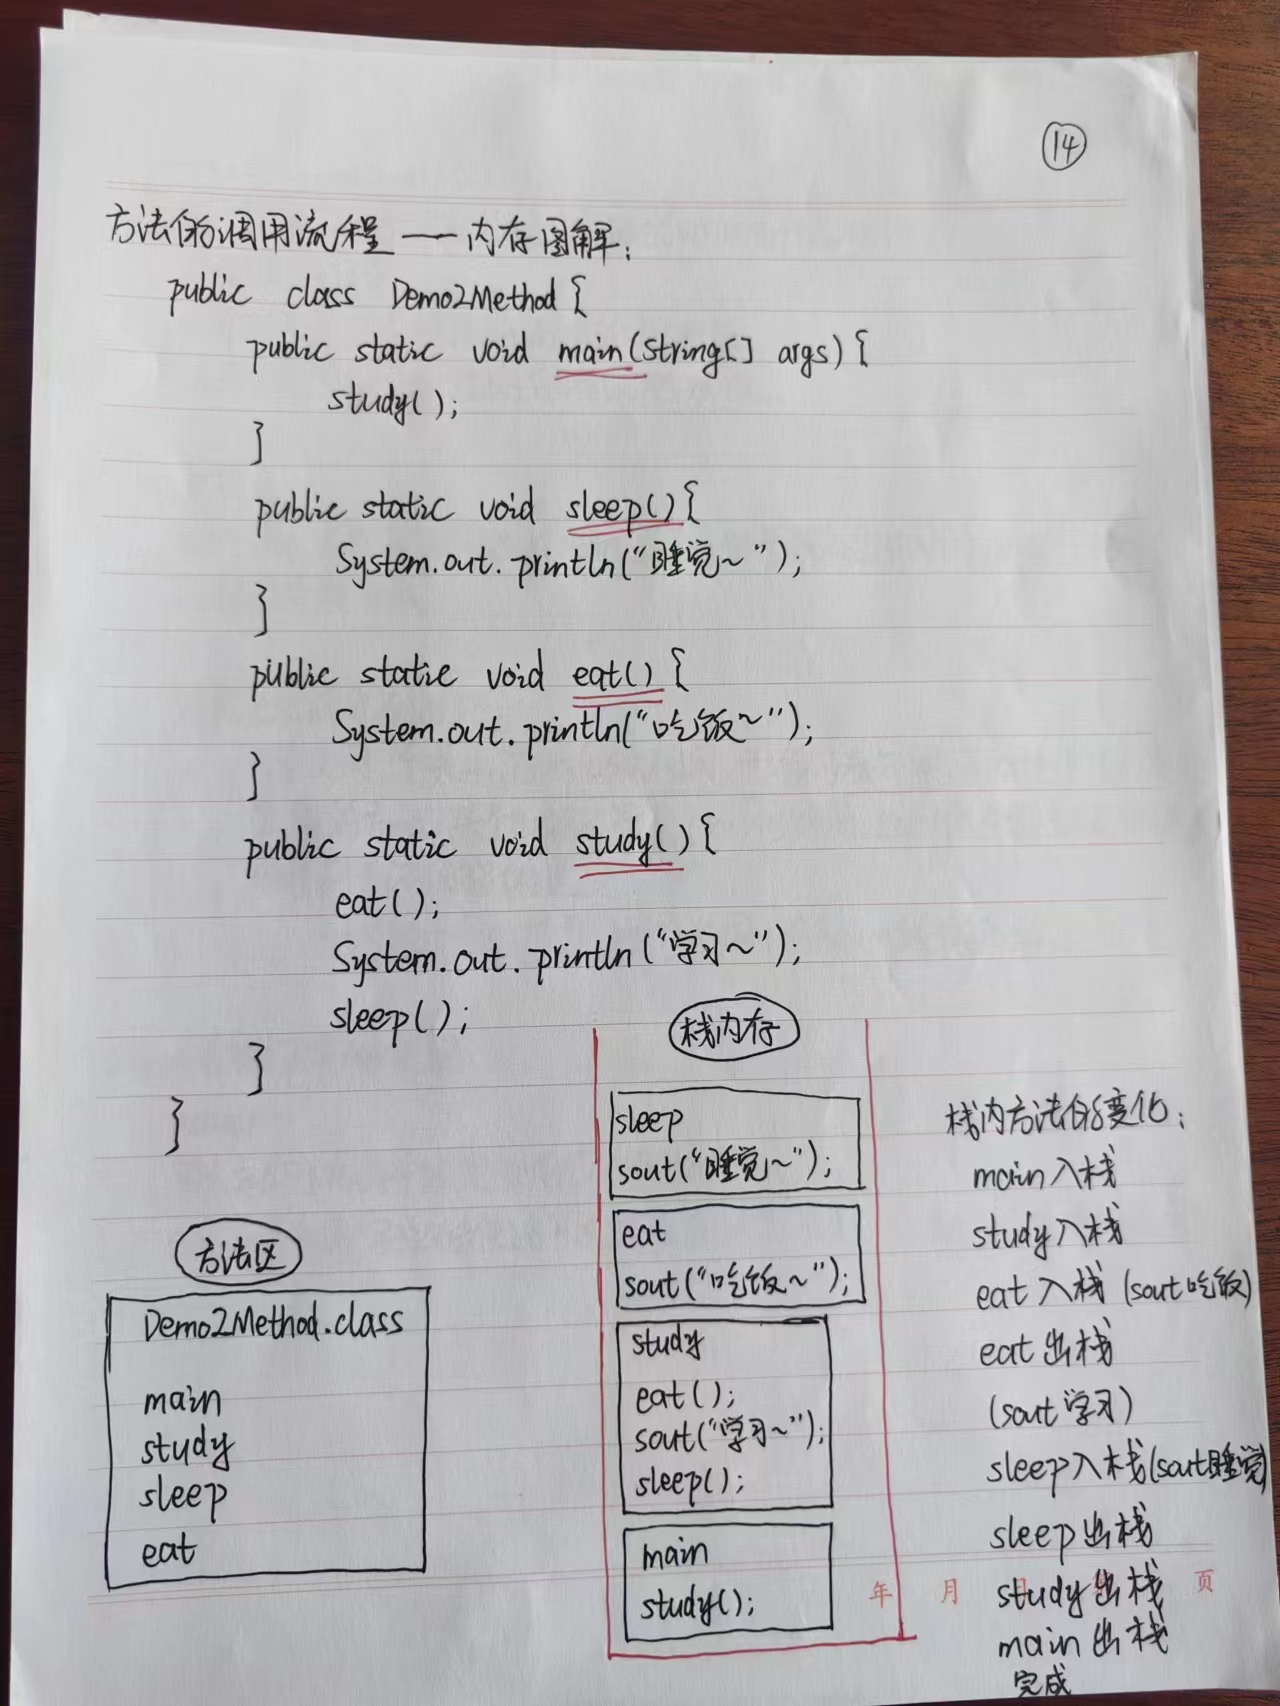 14
方法的调用流程——内存图解:
public class Demo2Method {
public static void main(String[] args) {
study();
}
public static void sleep() {
System.out.println("睡觉~");
}
public static void eat() {
System.out.println("吃饭~");
}
public static void study() {
eat();
System.out.println("学习~");
sleep();
}
}
方法区
Demo2Method.class
main
study
sleep
eat
栈内存
sleep
sout("睡觉~");
eat
sout("吃饭~");
study
eat();
sout("学习~");
sleep();
main
study();
栈内方法的变化:
main入栈
study入栈
eat入栈(sout吃饭)
eat出栈
(sout学习)
sleep入栈(sout睡觉)
sleep出栈
study出栈
main出栈
完成
年 月 日 页